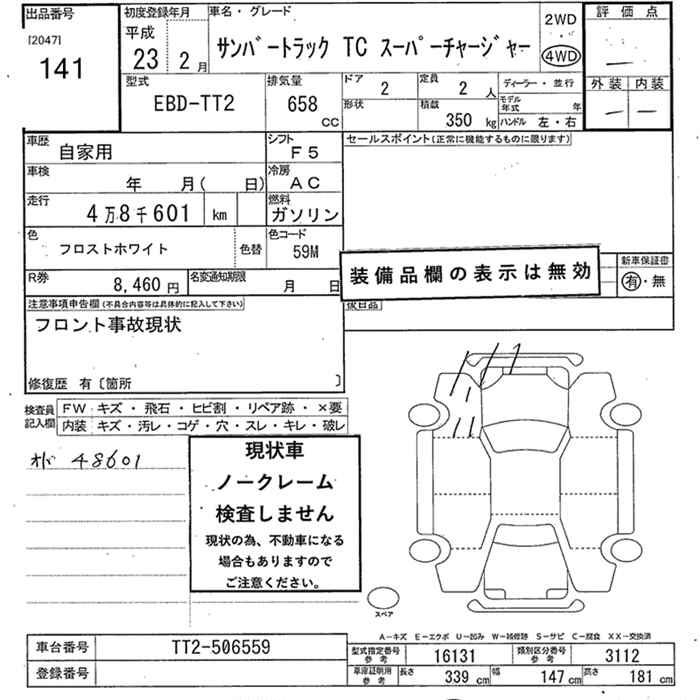 出品番号
[2047]
141
初度登録年月
平成
23 2月
車名・グレード
サンバートラック TC スーパーチャージャー
2WD
4WD
評価点
―
外装 内装
― ―
型式
EBD-TT2
排気量
658 CC
ドア 2
形状
定員 2 人
積載 350 kg
ディーラー・並行
モデル年式 年
ハンドル 左・右
車歴
自家用
シフト
F5
車検
年 月( 日)
冷房
AC
走行
4万8千601 km
燃料
ガソリン
色
フロストホワイト
色替
色コード
59M
R券
8,460 円
名変通知期限
月 日
セールスポイント(正常に機能するものに限ります)
装備品欄の表示は無効
新車保証書
有・無
後日品
注意事項申告欄(不具合内容等は具体的に記入して下さい)
フロント事故現状
修復歴 有〔箇所 〕
検査員記入欄
FW キズ・飛石・ヒビ割・リペア跡・×要
内装 キズ・汚レ・コゲ・穴・スレ・キレ・破レ
48601
現状車
ノークレーム
検査しません
現状の為、不動車になる
場合もありますので
ご注意ください。
スペア
A-キズ E-エクボ U-凹み W-補修跡 S-サビ C-腐食 XX-交換済
車台番号
TT2-506559
登録番号
型式指定番号 参考
16131
類別区分番号 参考
3112
車庫証明用 参考
長さ 339 cm
幅 147 cm
高さ 181 cm